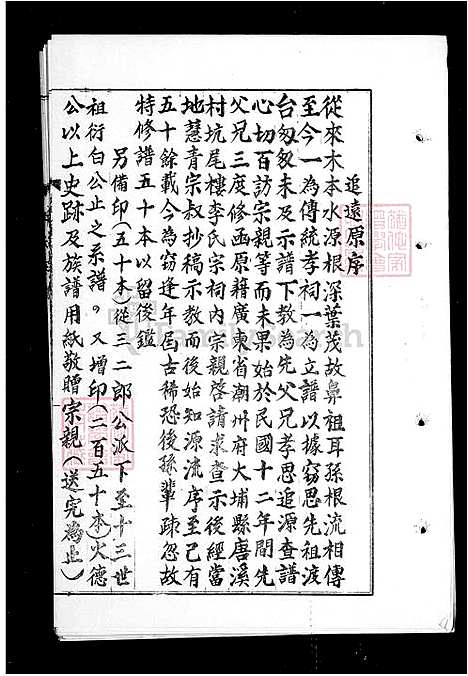 追遠原序
從來木本水源根深葉茂故鼻祖耳孫根流相傳
至今一為傳統孝祠一為立譜以據窃思先祖渡
台匆匆未及示譜下教為先父兄孝思追源查譜
心切百訪宗親等而未果始於民國十二年間先
父兄三度修函原藉廣東省潮州府大埔縣唐溪
村坑尾樓李氏宗祠內宗親啓請求查示後經當
地慧青宗叔抄稿示教而後始知源流序至已有
五十餘載今為窃逢年屆古稀恐後孫輩疎忽故
特修譜五十本以留後鑑
另備印(五十本)從三二郎公派下至十三世
祖衍白公止之系譜。又增印(二百五十本)火德
公以上史跡及族譜用紙敬贈宗親(送完為止)